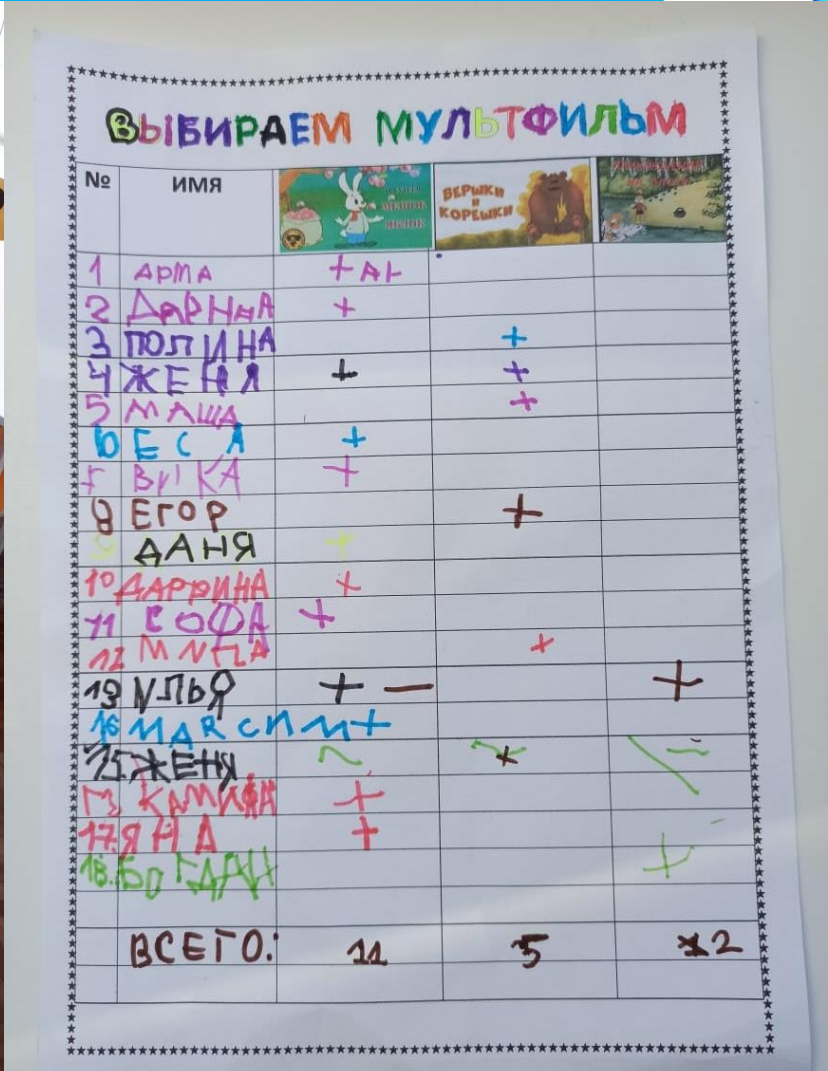 ВЫБИРАЕМ МУЛЬТФИЛЬМ
№ ИМЯ МЕШОК ЯБЛОК ВЕРШКИ И КОРЕШКИ
1 АРТА + АН
2 ДАРНАА +
3 ПОЛИНА +
4 ЖЕНЯ + +
5 МАША +
6 ЕСА +
ВИКА +
8 ЕГОР +
9 ДАНЯ +
10 ДАРРИНА +
11 СОФА +
12 +
13 ИЛЬЯ + — +
16 МАRСИМ +
15 ЖЕНЯ +
КАМИЛА +
17. ЯНА +
18. БОГДАН +
ВСЕГО: 11 5 2